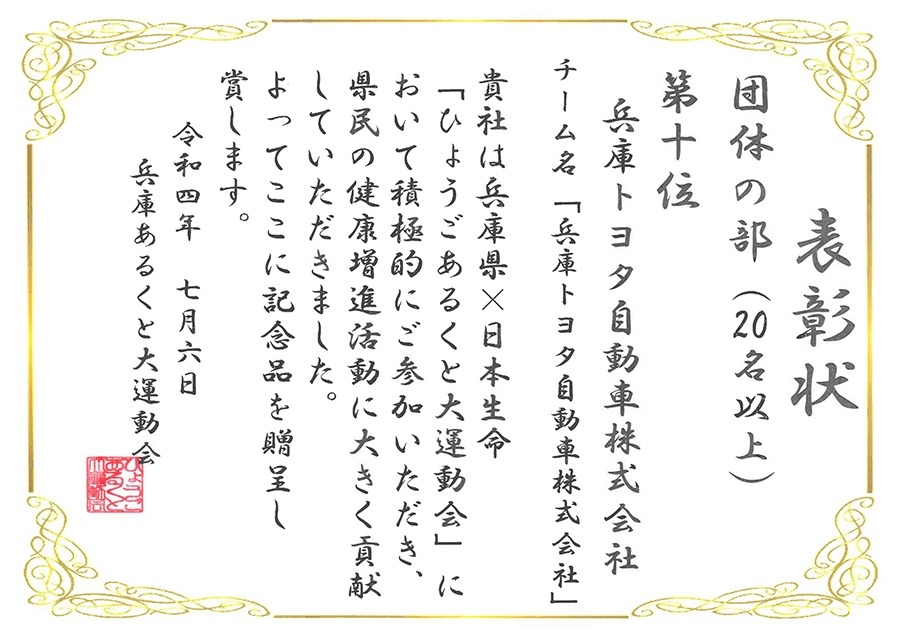 表彰状
団体の部（20名以上）
第十位
兵庫トヨタ自動車株式会社
チーム名「兵庫トヨタ自動車株式会社」
貴社は兵庫県×日本生命
「ひょうごあるくと大運動会」に
おいて積極的にご参加いただき、
県民の健康増進活動に大きく貢献
していただきました。
よってここに記念品を贈呈し
賞します。
令和四年 七月六日
兵庫あるくと大運動会
ひょうご
あるくと
大運動会